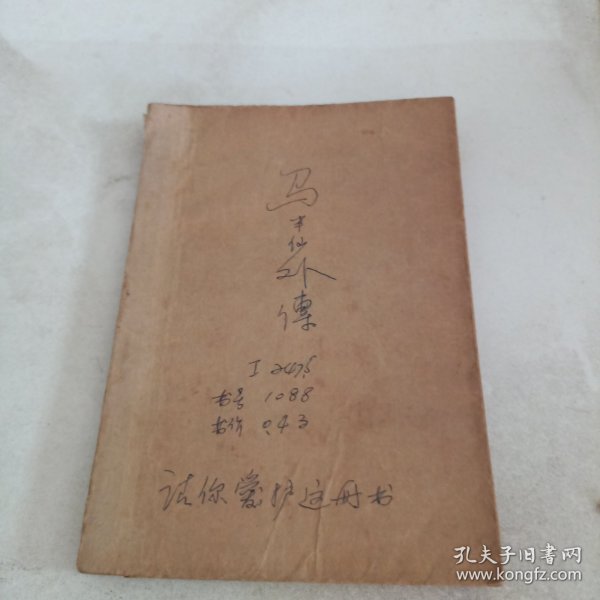 马半仙外傳
I247.5
书号 1088
书价 0.43
请你爱护这册书
孔夫子旧书网
www.kongfz.com